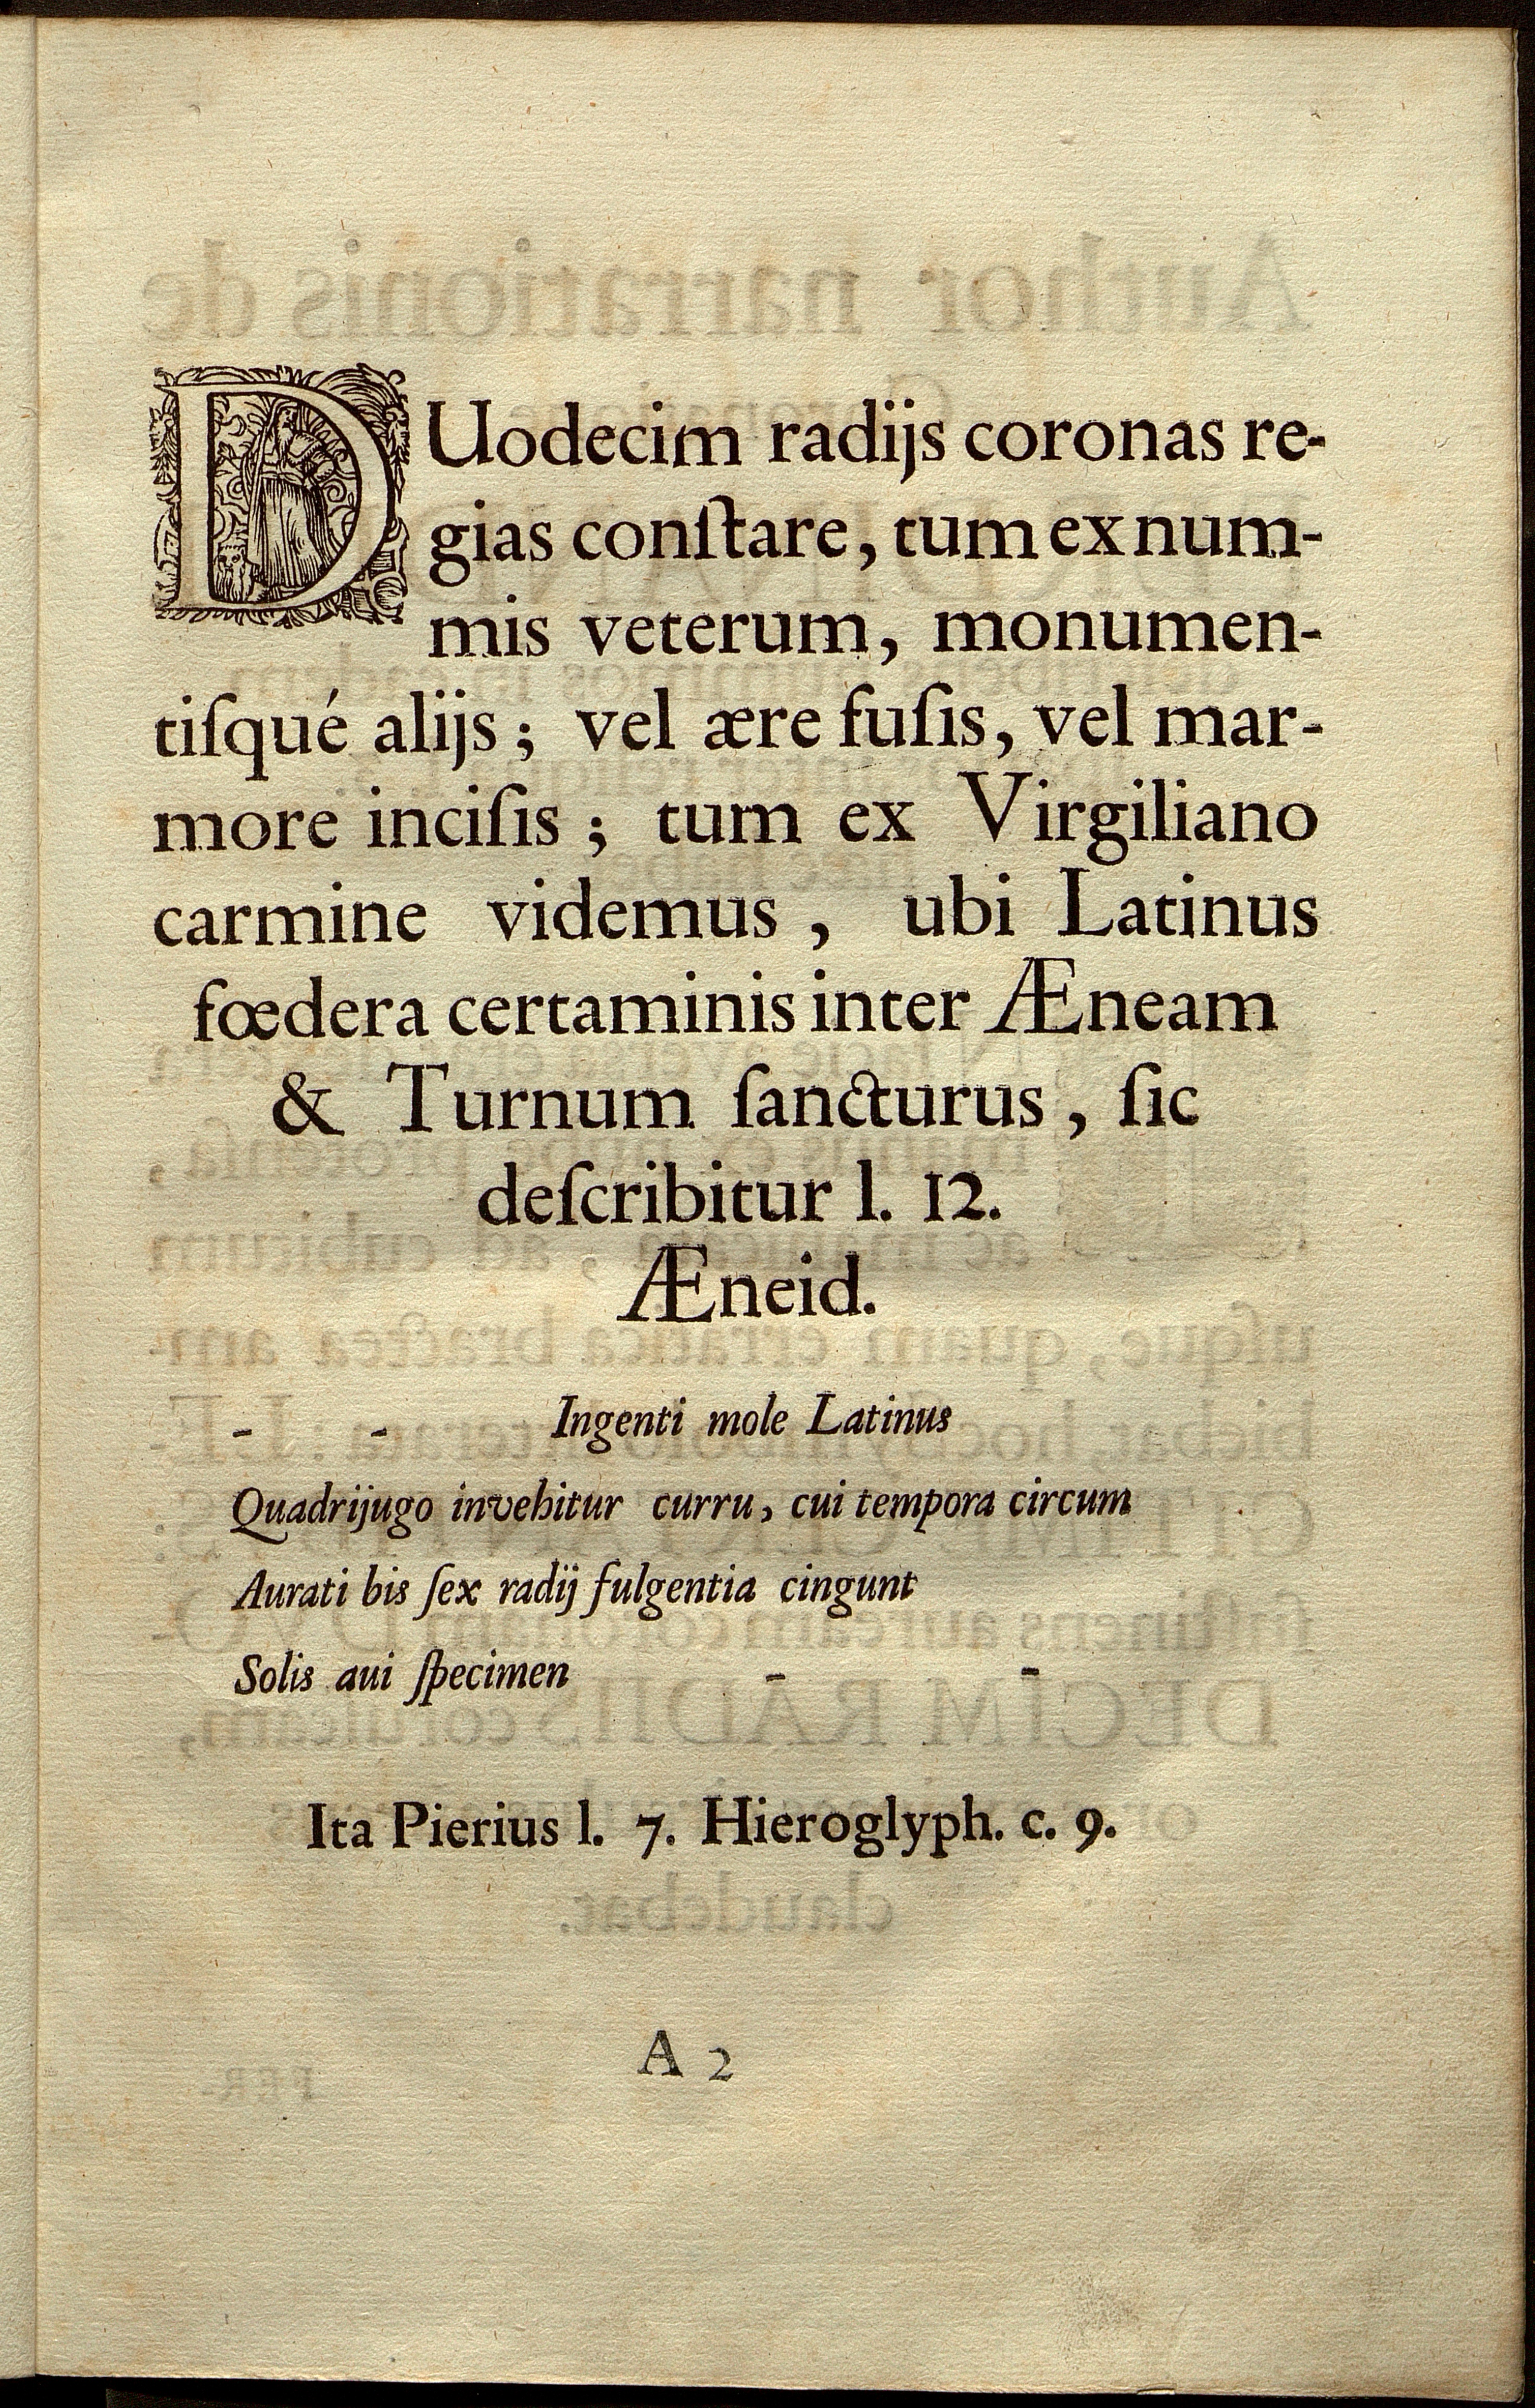 DUodecim radijs coronas re-
gias conſtare, tum ex num-
mis veterum, monumen-
tiſqué alijs; vel ære fuſis, vel mar-
more inciſis; tum ex Virgiliano
carmine videmus, ubi Latinus
fœdera certaminis inter Æneam
& Turnum ſancturus, ſic
deſcribitur l. 12.
Æneid.
- - Ingenti mole Latinus
Quadrijugo invehitur curru, cui tempora circum
Aurati bis ſex radij fulgentia cingunt
Solis aui ſpecimen - -
Ita Pierius l. 7. Hieroglyph. c. 9.
A 2